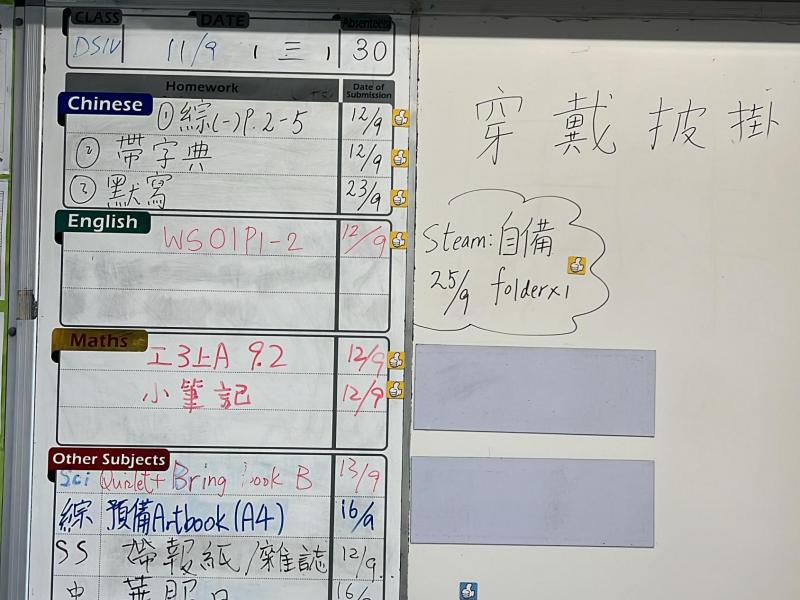 CLASS DATE Absentees
DSIV 11/9 ( 三 ) 30
Homework Date of Submission
Chinese ①綜(一)P.2-5 12/9
② 帶字典 12/9
③ 默寫 23/9
English
WS01P1-2 12/9
Maths
工3上A 9.2 12/9
小筆記 12/9
Other Subjects
Sci Quizlet+ Bring book B 13/9
綜 預備Artbook(A4) 16/9
SS 帶報紙/雜誌 12/9
穿戴披掛
Steam: 自備
25/9 folderx1